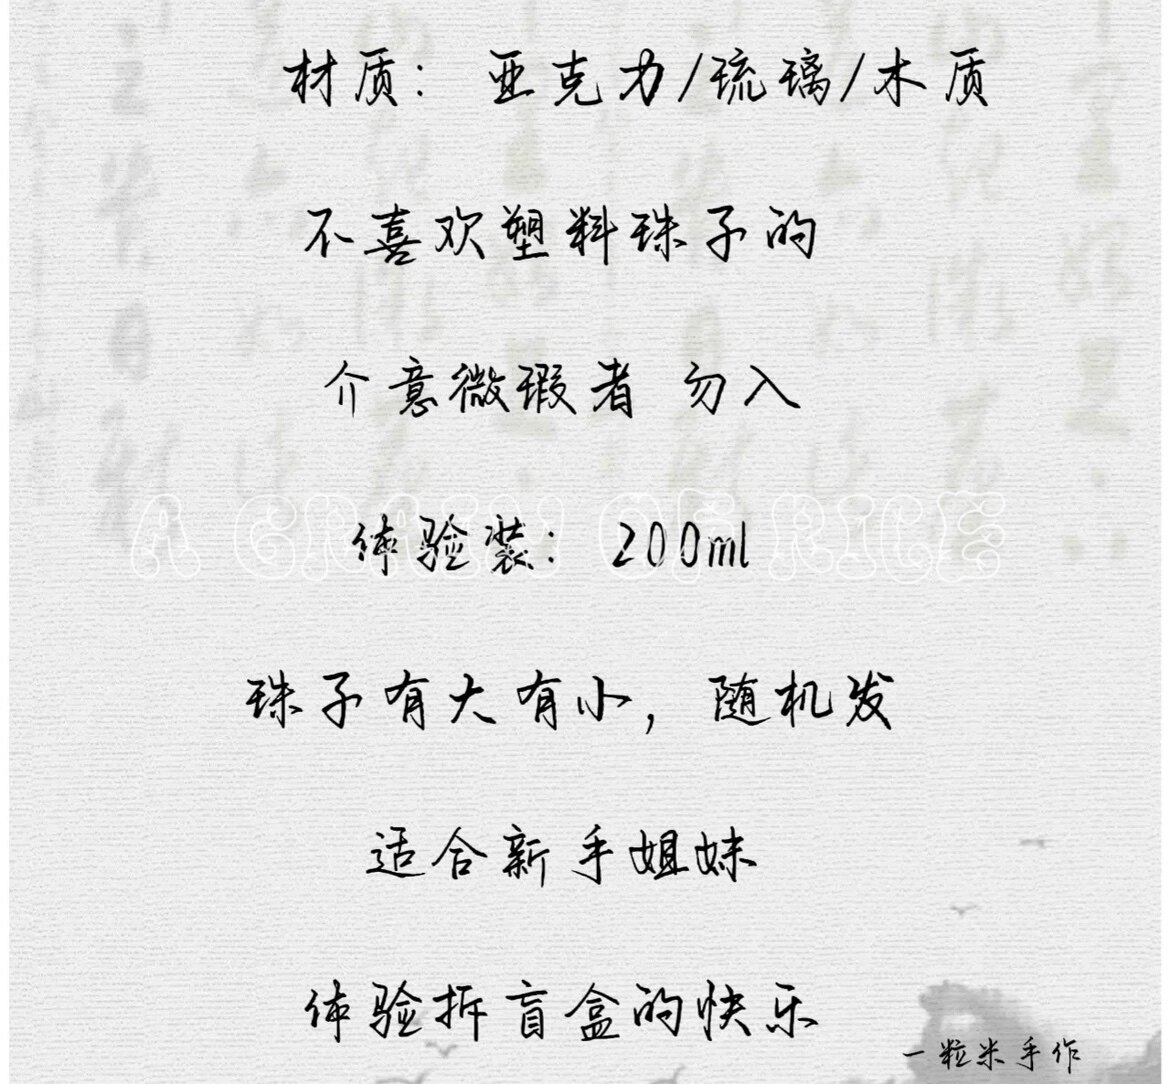 材质：亚克力/琉璃/木质
不喜欢塑料珠子的
介意微瑕者 勿入
A GRAIN OF RICE
体验装：200ml
珠子有大有小，随机发
适合新手姐妹
体验拆盲盒的快乐
一粒米手作